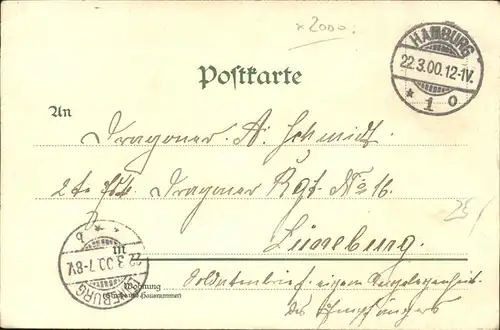 x2000.
HAMBURG
22.3.00.12-1V.
* 1 o
Postkarte
An
Dragoner A. Schmidt
2te Esk. Dragoner Rgt. No 16.
25/
Lüneburg.
22.3.00.7-8V.
Wohnung
(Straße und Hausnummer)
Soldatenbrief, eigene Angelegenheit
des Empfängers